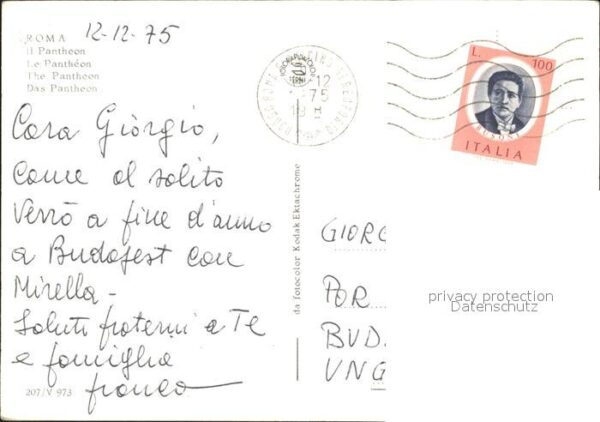 12-12-75
ROMA
Il Pantheon
Le Panthéon
The Pantheon
Das Pantheon
Cara Giorgio,
come al solito
verrò a fine d'anno
a Budapest con
Mirella-
Saluti fraterni a Te
e famiglia
franco
207/V 973
da fotocolor Kodak Ektachrome
12
75
L. 100
BUSONI
ITALIA
GIORG
POR
BUD.
UNG
privacy protection
Datenschutz